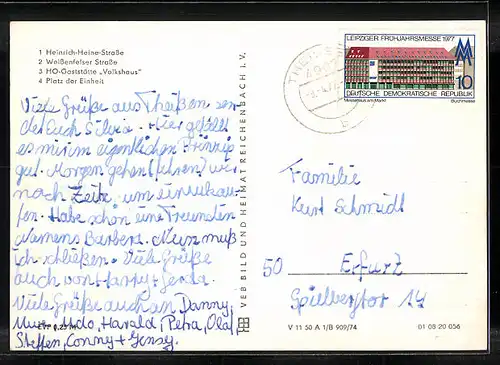 1 Heinrich-Heine-Straße
2 Weißenfelser Straße
3 HO-Gaststätte „Volkshaus"
4 Platz der Einheit
Viele Grüße aus Theißen sen-
det Euch Silvia. Hier gefällt
es mir im eigentlichen Prinzip
gut. Morgen gehen (fahren) wir
nach Zeitz, um einzukau-
fen. Habe schon eine Freundin
Namens Barbara. Nun muß
ich schließen. Viele Grüße
auch von Harry, Gerda.
Viele Grüße auch an Danny,
Udo, Harald, Petra, Olaf,
Steffen, Conny +
VEB BILD UND HEIMAT REICHENBACH I. V.
LEIPZIGER FRÜHJAHRSMESSE 1977
MM
10
DEUTSCHE DEMOKRATISCHE REPUBLIK
Messehaus am Markt Buchmesse
Familie
Kurt Schmidt
50 Erfurt
Spielbergtor 14
V 11 50 A 1/B 909/74
01 08 20 056